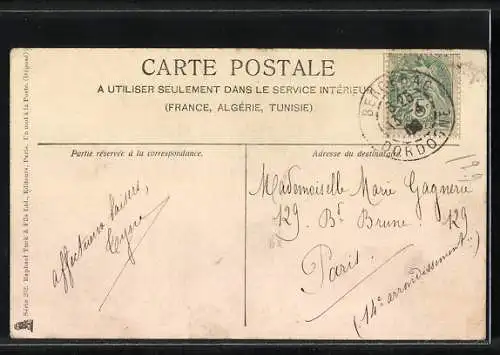 CARTE POSTALE
A UTILISER SEULEMENT DANS LE SERVICE INTÉRIEUR
(FRANCE, ALGÉRIE, TUNISIE).
BERGERAC
DORDOGNE
5
Partie réservée à la correspondance.
Adresse du destinataire.
affectueux baisers,
Mademoiselle Marie Gagnerie
129 Bd Brune. 129
Paris.
(14e arrondissement.)
Série 252. Raphael Tuck & Fils Ltd., Editeurs, Paris.